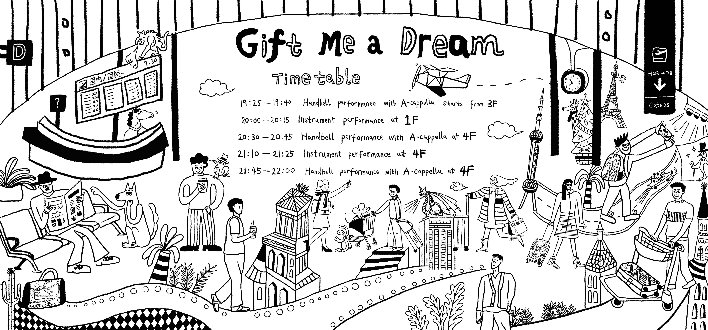 D
Gift Me a Dream
Time table
?
Handbell performance with A-cappella starts from 3F
20:00—20:15 Instrument performance at 1F
20:30—20:45 Handbell performance with A-cappella at 4F
21:10—21:25 Instrument performance at 4F
21:45—22:00 Handbell performance with A-cappella at 4F